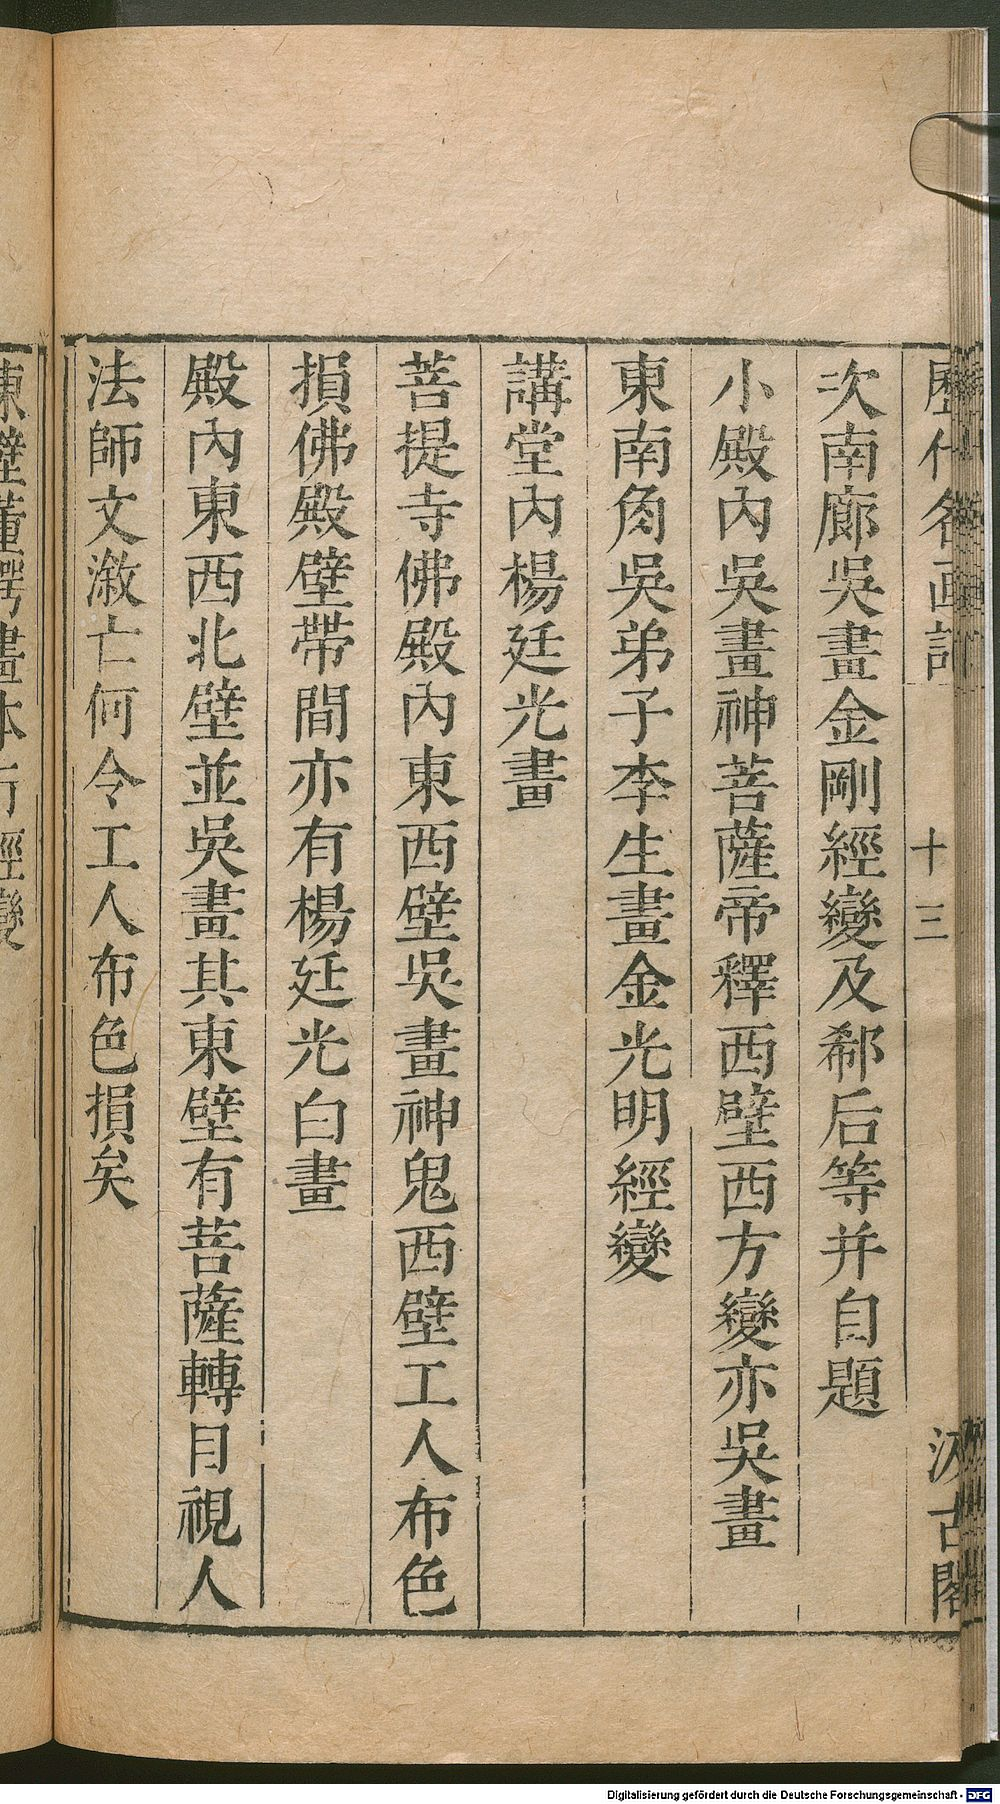 歷代名画記 十三 汲古閣
次南廊吳畫金剛經變及郗后等并自題
小殿內吳畫神菩薩帝釋西壁西方變亦吳畫
東南角吳弟子李生畫金光明經變
講堂內楊廷光畫
菩提寺佛殿內東西壁吳畫神鬼西壁工人布色
損佛殿壁帶間亦有楊廷光白畫
殿內東西北壁並吳畫其東壁有菩薩轉目視人
法師文漵亡何令工人布色損矣
東壁董諤畫本行經變
Digitalisierung gefördert durch die Deutsche Forschungsgemeinschaft - DFG